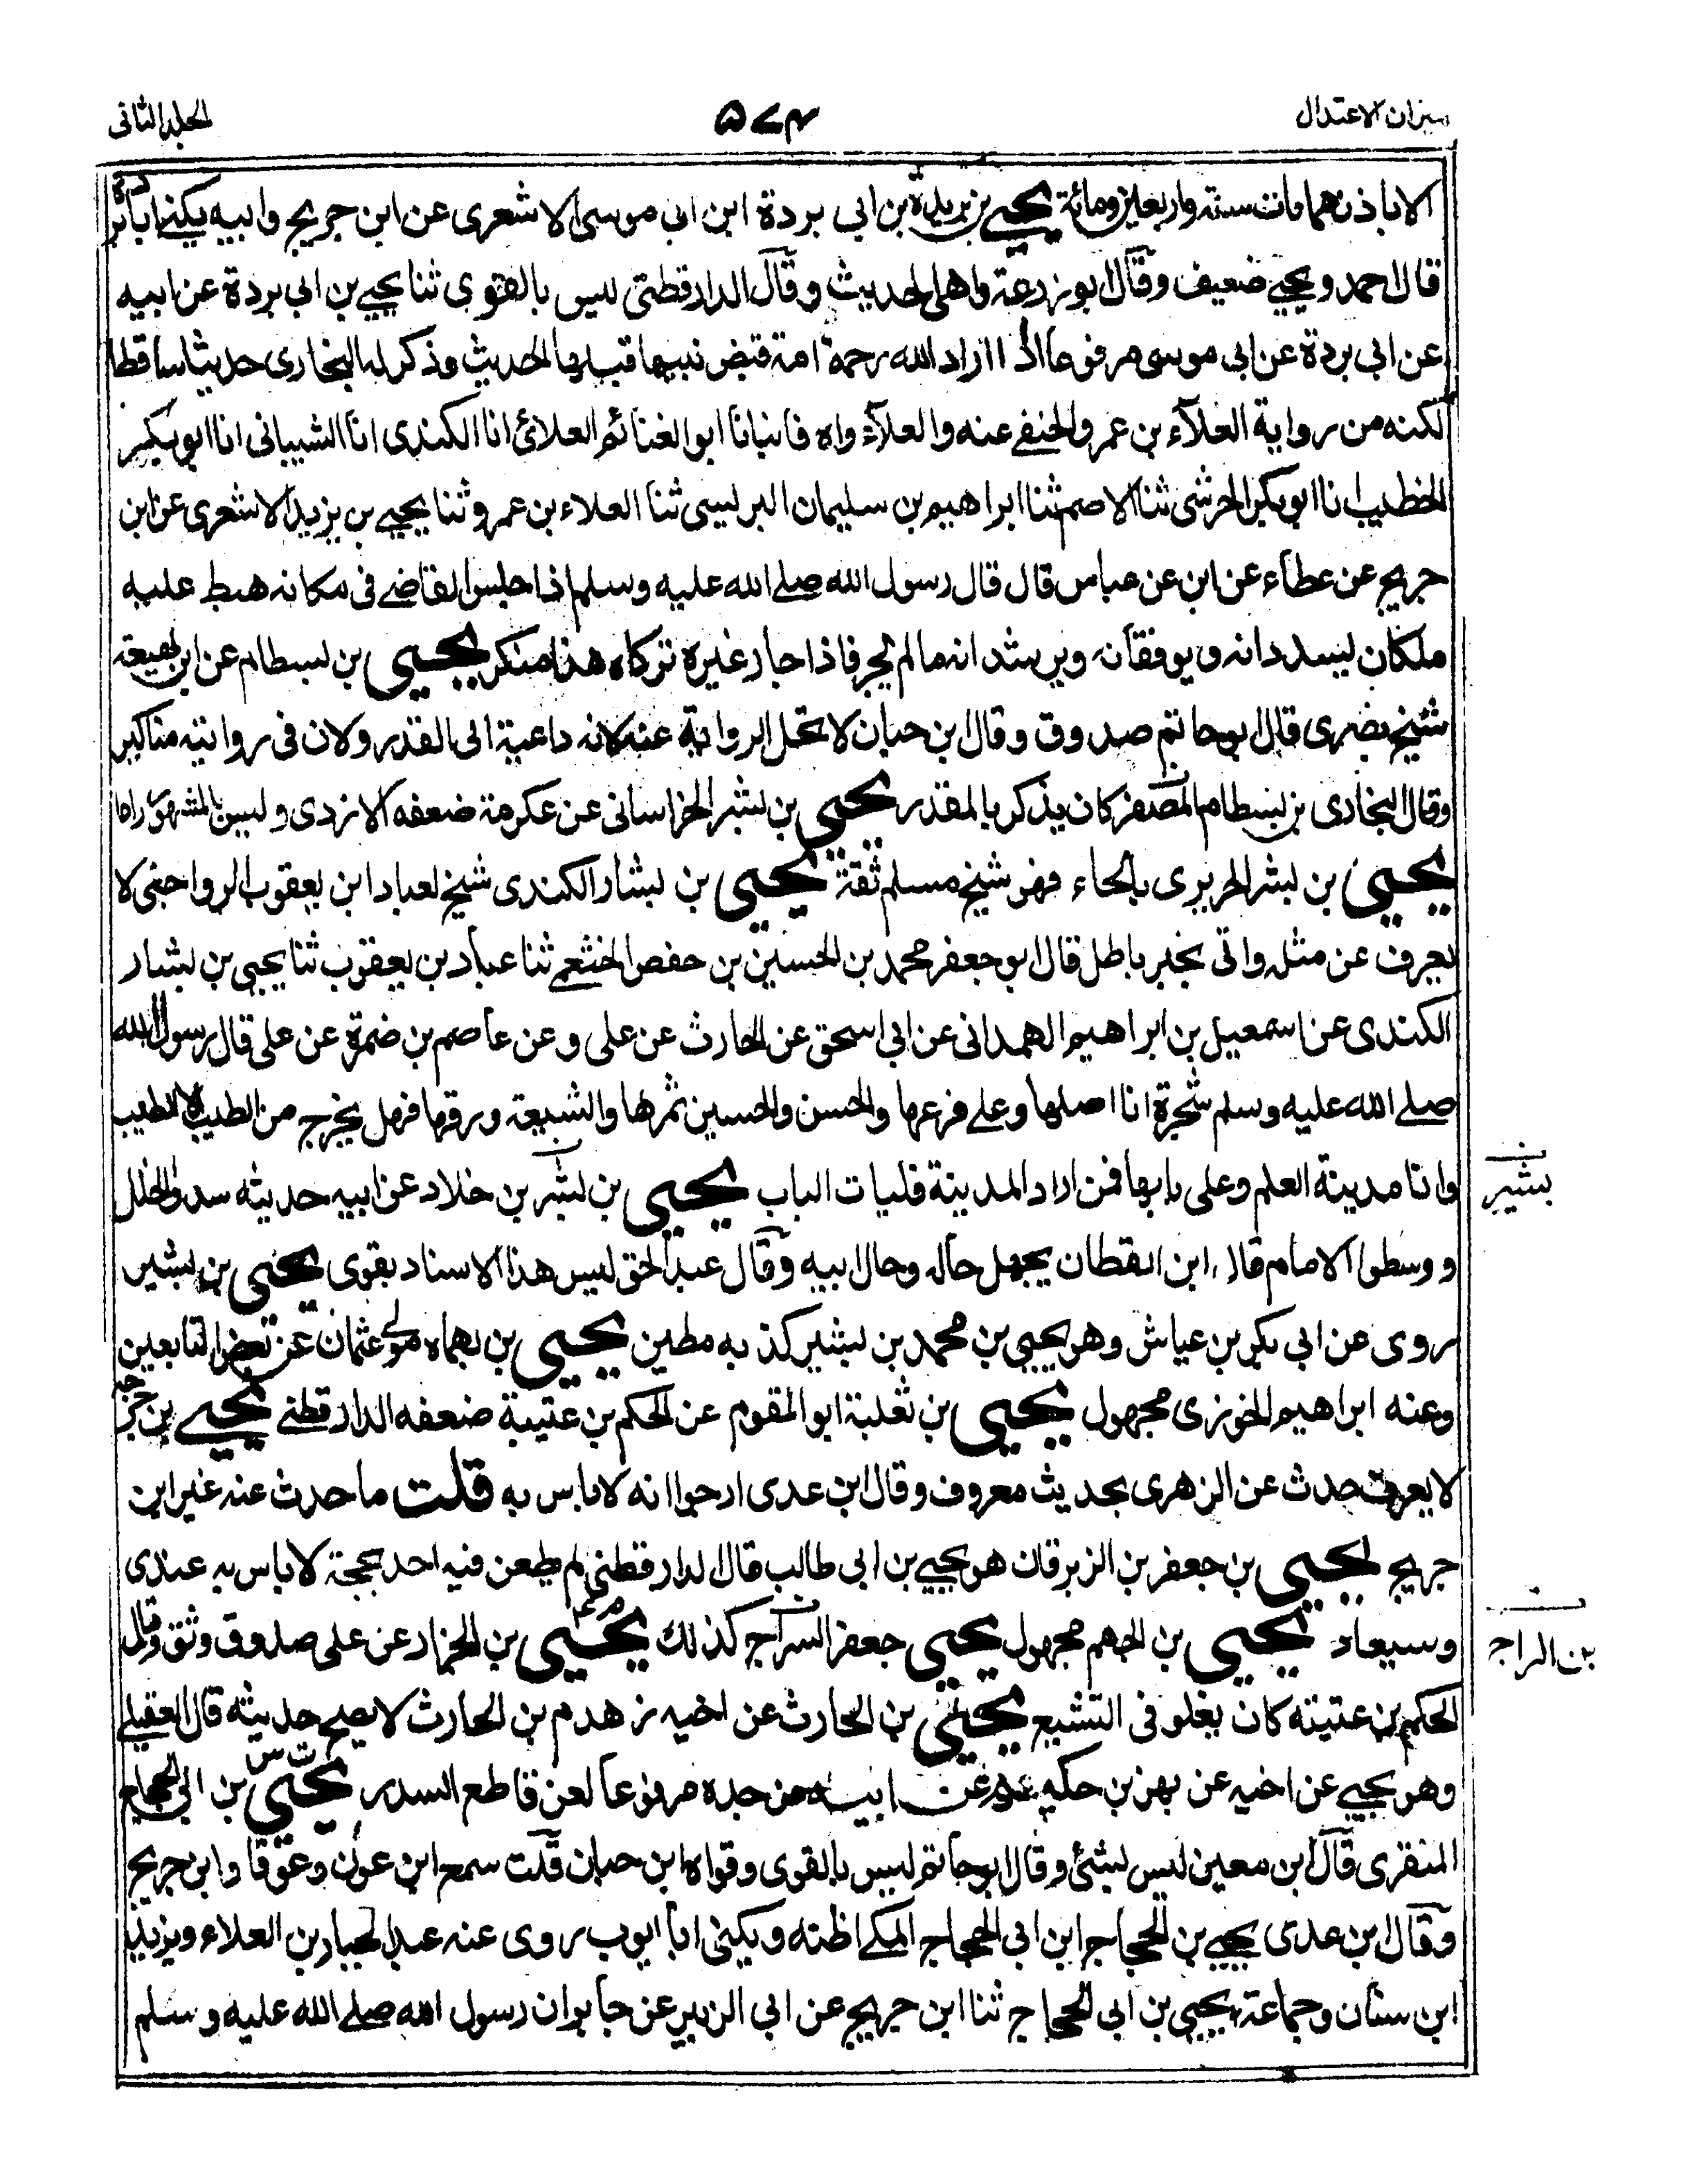 ميزان الاعتدال
٥٧٤
الجلد الثانى
الا باذنهما مات سنة واربعين ومائة يحيى بن بريدة بن ابى بردة ابن ابى موسى الاشعرى عن ابن جريج وابيه يكنى ابا بردة
قال احمد ويحيى ضعيف وقال ابو زرعة واهى الحديث وقال الدارقطنى ليس بالقوى ثنا يحيى بن ابى بردة عن ابيه
عن ابى بردة عن ابى موسى مرفوعا اذا اراد الله رحمة امة قبض نبيها قبلها الحديث وذكر له البخارى حديثا ساقطا
لكنه من رواية العلآء بن عمرو الحنفى عنه والعلآء واه فانبانا ابو الغنائم العلائ انا الكندى انا الشيبانى انا ابو بكر
الخطيب انا ابو بكر الحرشى ثنا الاصم ثنا ابراهيم بن سليمان البرلسى ثنا العلاء بن عمرو ثنا يحيى بن يزيد الاشعرى عن ابن
جريج عن عطاء عن ابن عن عباس قال قال رسول الله صلے الله عليه وسلم اذا جلس القاضے فى مكانه هبط عليه
ملكان يسددانه ويوفقانه ويرشدانه مالم يجر فاذا جار غيره تركاه هذا منكر يحيى بن بسطام عن ابن لهيعة
شيخ بصرى قال ابو حاتم صدوق وقال ابن حبان لا تحل الرواية عنه لانه داعية الى القدر ولان فى روايته مناكير
وقال البخارى بن بسطام المصفر كان يذكر بالقدر يحيى بن بشر الخراسانى عن عكرمة ضعفه الازدى وليس بالمشهور اما
يحيى بن بشر الحريرى بالحاء فهو شيخ مسلم ثقة يحيى بن بشار الكندى شيخ لعباد ابن يعقوب الرواجنى لا
يعرف عن مثله واتى بخبر باطل قال ابو جعفر محمد بن الحسين بن حفص الخثعمے ثنا عباد بن يعقوب ثنا يحيى بن بشار
الكندى عن اسمعيل بن ابراهيم الهمدانى عن ابى اسحق عن الحارث عن على وعن عاصم بن ضمرة عن على قال رسول الله
صلے الله عليه وسلم شجرة انا اصلها وعلے فرعها والحسن والحسين ثمرها والشيعة ورقها فهل يخرج من الطيب الا الطيب
وانا مدينة العلم وعلى بابها فمن اراد المدينة فليات الباب يحيى بن بشر بن خلاد عن ابيه حديثه سدوا الخلل
ووسطوا الامام قال ابن القطان يجهل حاله وحال ابيه وقال عبد الحق ليس هذا الاسناد بقوى يحيى بن بشير
روى عن ابى بكر بن عياش وهو يحيى بن محمد بن بشير كذبه مطين يحيى بن بهماه مولے عثمان عن بعض التابعين
وعنه ابراهيم الخوزى مجهول يحيى بن ثعلبة ابو المقوم عن الحكم بن عتيبة ضعفه الدارقطنے يحيے بن جرجه
لا يعرف حدث عن الزهرى بحديث معروف وقال ابن عدى ارجوا انه لا باس به قلت ما حدث عنه غير ابن
جريج يحيى بن جعفر بن الزبرقان هو يحيے بن ابى طالب قال الدارقطنى لم يطعن فيه احد بحجة لا باس به عندى
وسيعاد يحيى بن الجهم مجهول يحيى جعفر السراج كذلك يحيى بن الجزار عن على صدوق وثق وقال
الحكم بن عتيبة كان يغلو فى التشيع يحيى بن الحارث عن اخيه زهدم بن الحارث لا يصح حديثه قال العقيلے
وهو يحيے عن اخيه عن بهز بن حكيم عن ابيه من جده مرفوعا لعن قاطع السدر يحيى بن ابى الحجاج
المنقرى قال ابن معين ليس بشئ وقال ابو حاتم ليس بالقوى وقواه ابن حبان قلت سمع ابن عون وعوفا وابن جريج
وقال ابن عدى يحيے بن الحجاج ابن ابى الحجاج المكے اظنه ويكنى ابا ايوب روى عنه عبد الجبار بن العلاء ويزيد
ابن سنان وجماعة يحيى بن ابى الحجاج ثنا ابن جريج عن ابى الزبير عن جابر ان رسول الله صلے الله عليه وسلم
بشير
بن الراج